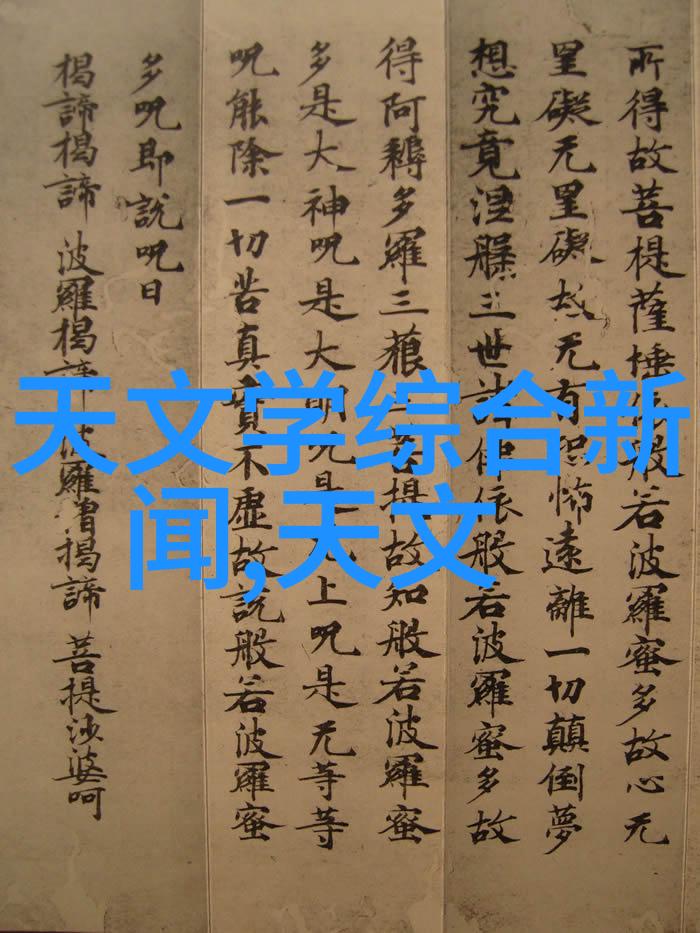 所得故菩提薩埵依般若波羅蜜多故心无
罣礙无罣礙故无有恐怖遠離一切顛倒夢
想究竟涅槃三世諸佛依般若波羅蜜多故
得阿耨多羅三藐三菩提故知般若波羅蜜
多是大神呪是大明呪是无上呪是无等等
呪能除一切苦真實不虛故説般若波羅蜜
多呪即説呪曰
揭諦揭諦 波羅揭諦 波羅僧揭諦 菩提沙婆呵
天文学综合新
闻,天文